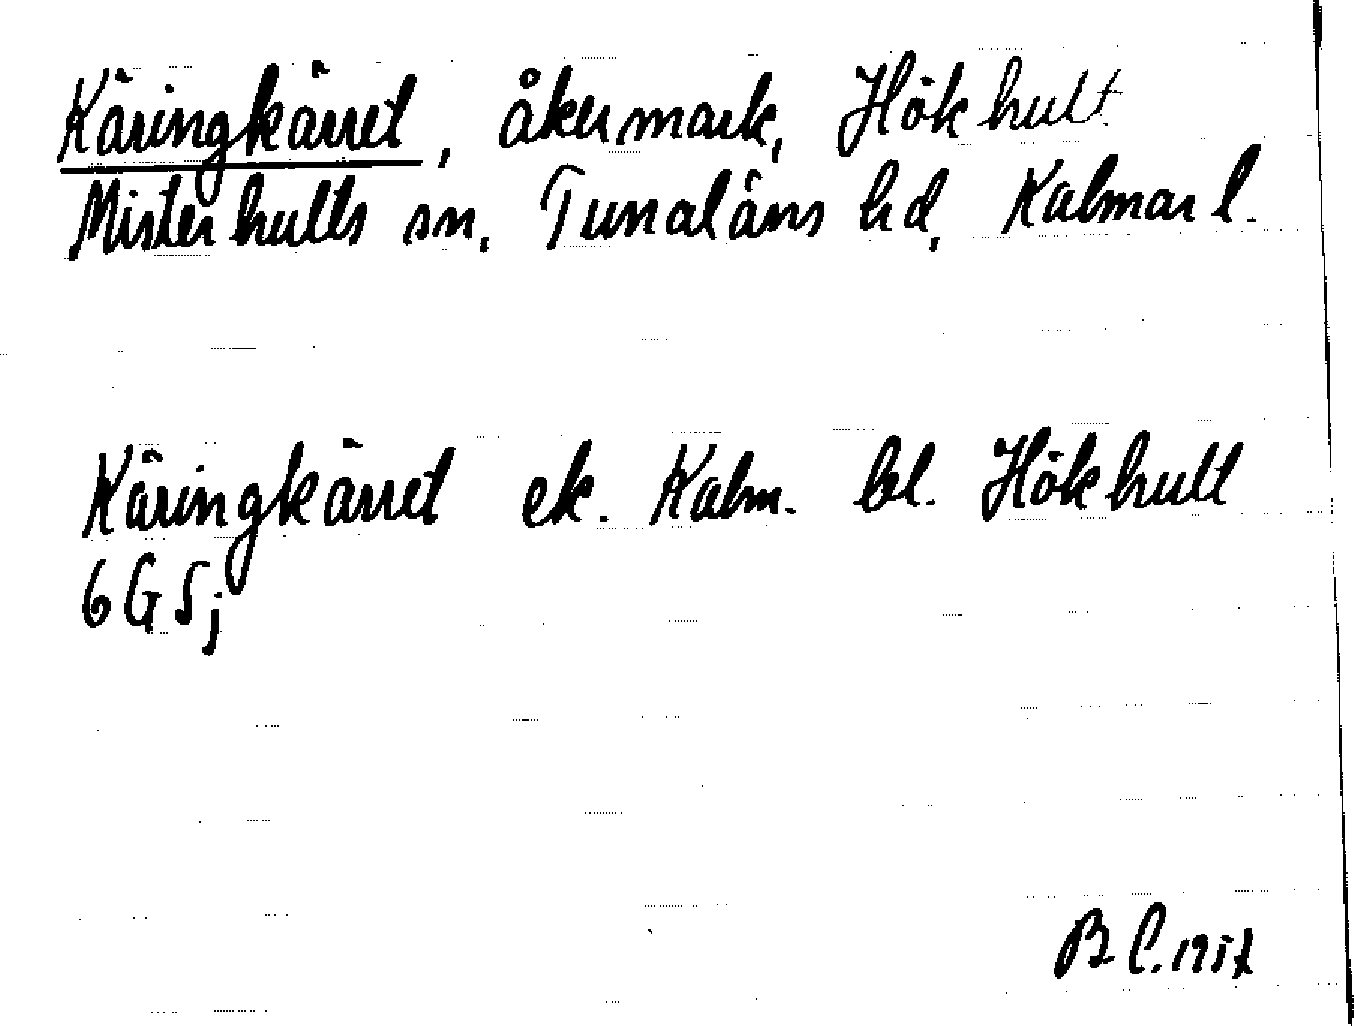 Käringkärret, åkermark, Hökhult
Misterhults sn, Tunaläns hd, Kalmar l.
Käringkärret ek. Kalm. bl. Hökhult
6G5j
B C. 195